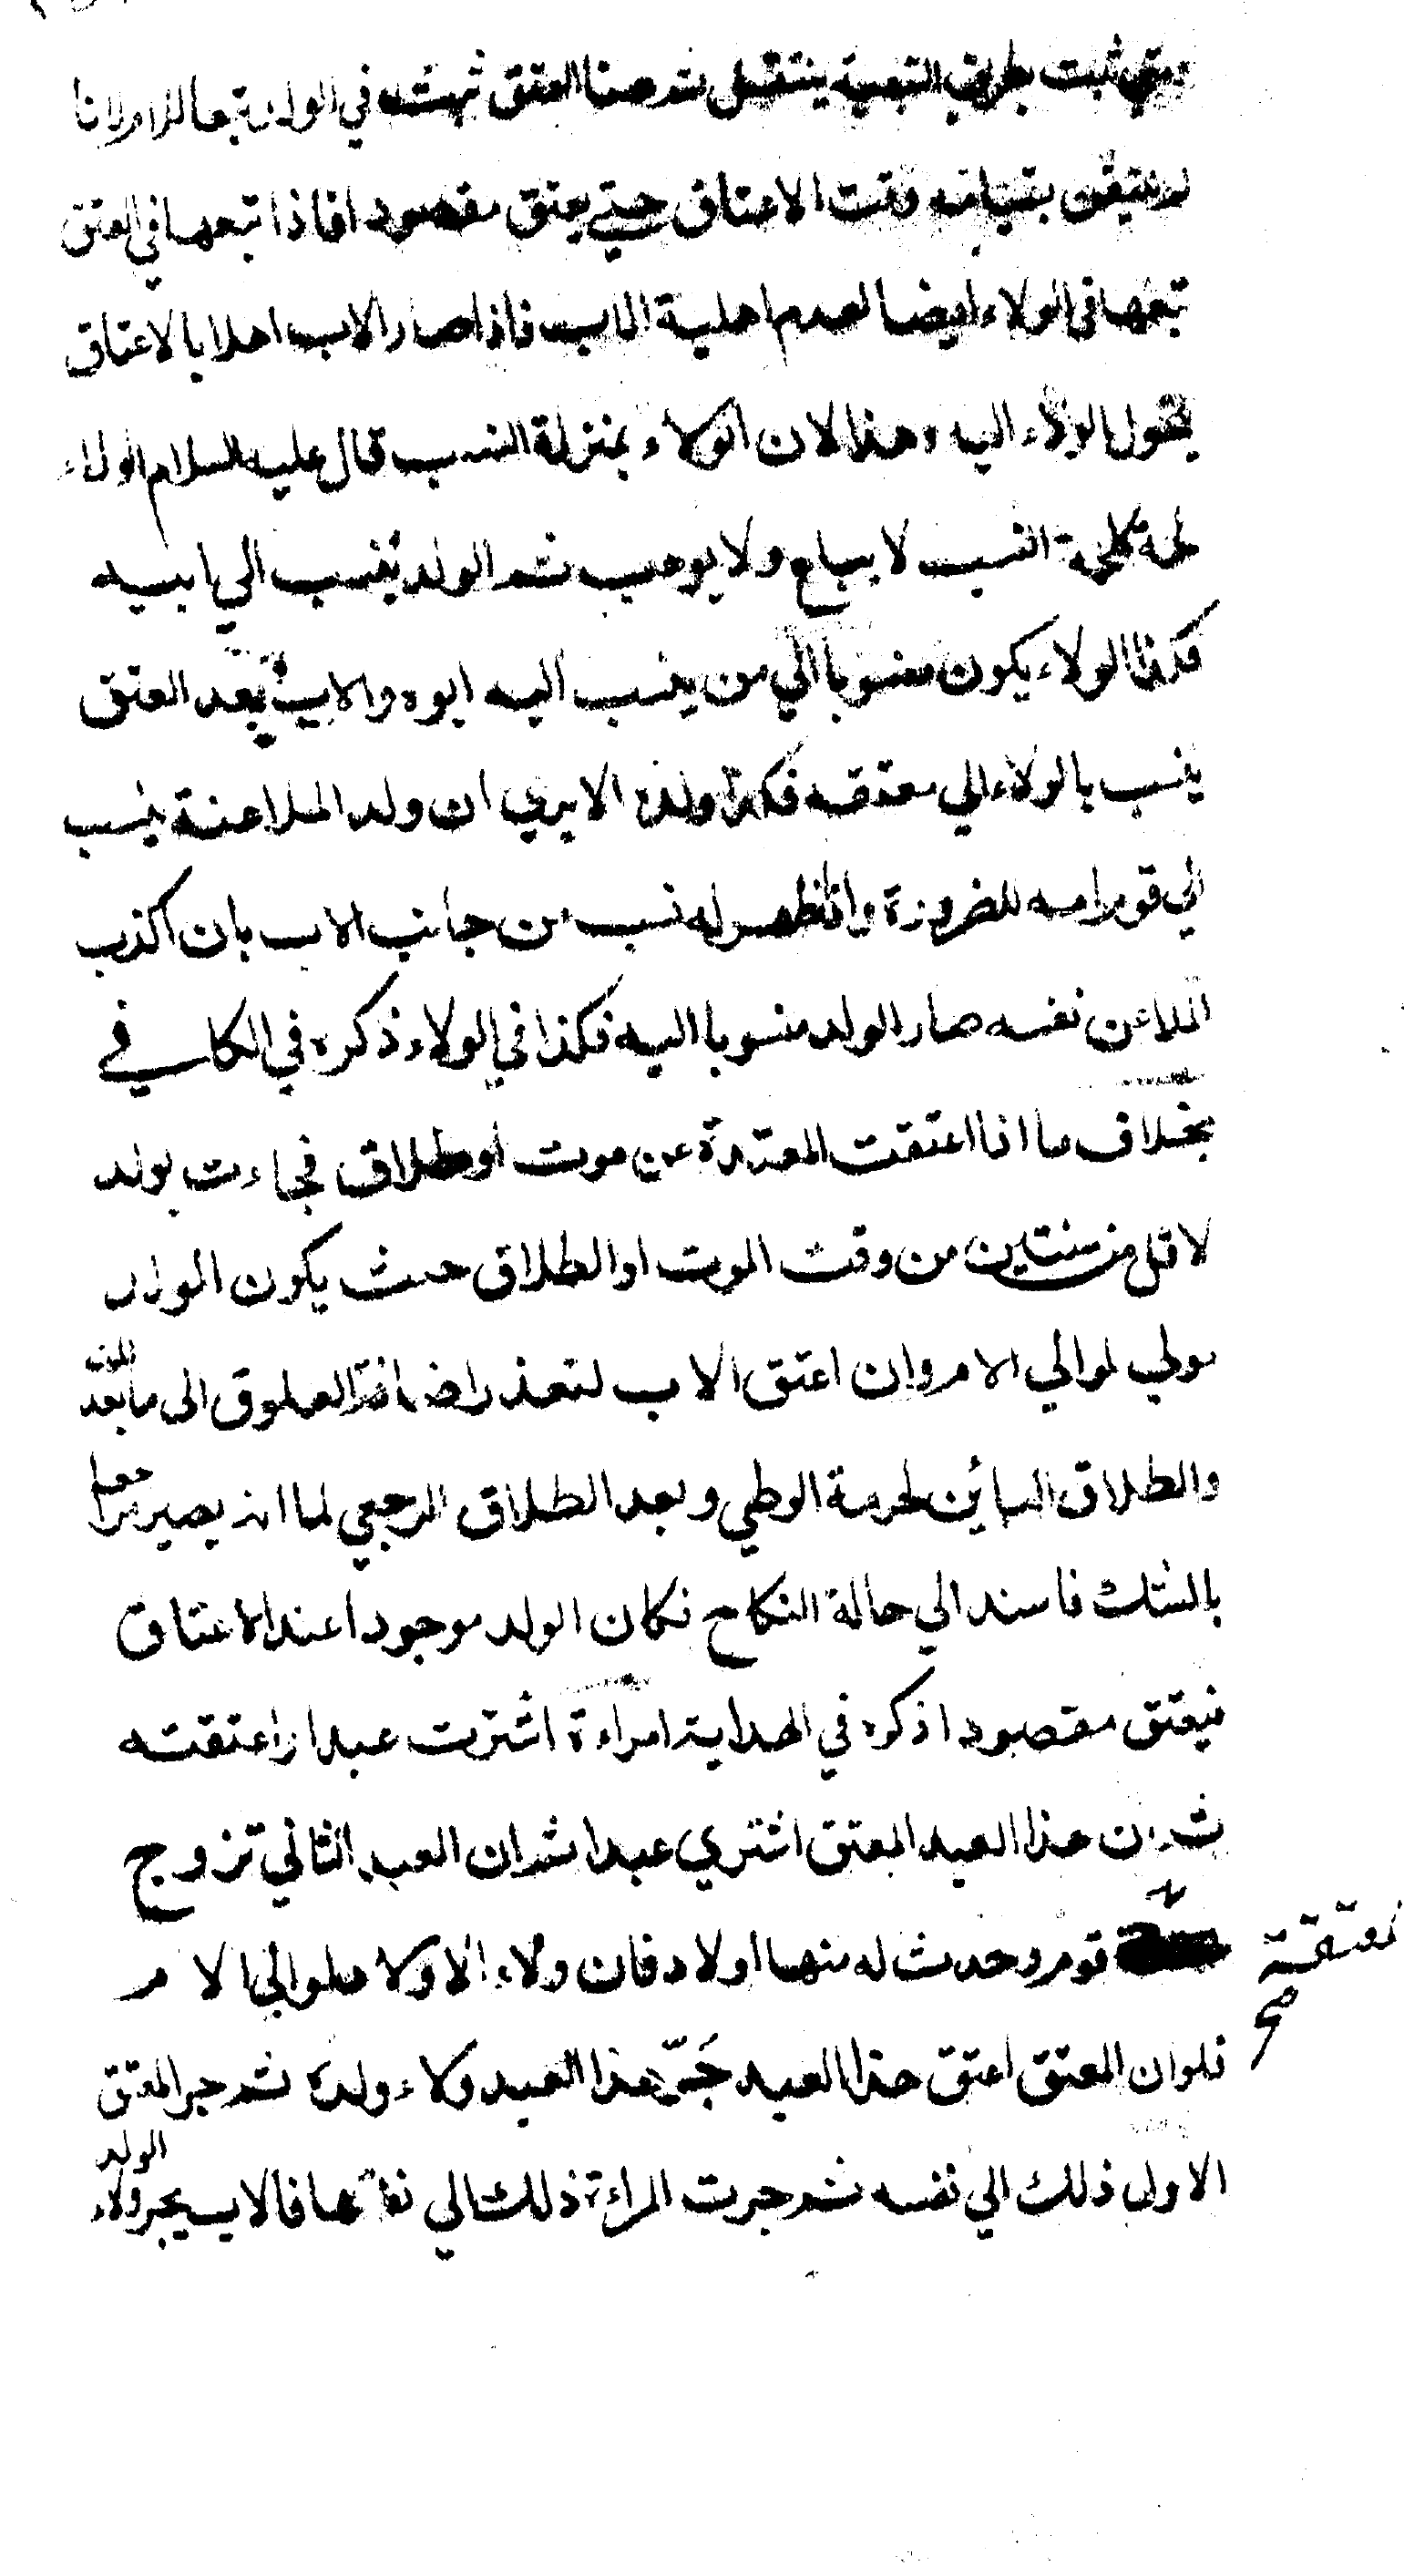 ومتى ثبت بطريق التبعية ينتقل ثم هنا العتق ثبت في الولد تبعا للام لانا
لم نتيقن بقيامه وقت الاعتاق حتى يعتق مقصودا فاذا تبعها في العتق
تبعها في الولاء ايضا لعدم اهلية الاب فاذا صار الاب اهلا بالاعتاق
يتحول الولاء اليه وهذا لان الولاء بمنزلة النسب قال عليه السلام الولاء
لحمة كلحمة النسب لا يباع ولا يوهب ثم الولد ينسب الي ابيه
فكذا الولاء يكون منسوبا الي من ينسب اليه ابوه والاب بعد العتق
ينسب بالولاء الي معتقه فكذا ولده الا يري ان ولد الملاعنة ينسب
الي قوم امه للضرورة واذا ظهر له نسب من جانب الاب بان اكذب
الملاعن نفسه صار الولد منسوبا اليه فكذا في الولاء ذكره في الكافي
بخلاف ما اذا اعتقت المعتدة عن موت او طلاق فجاءت بولد
لاقل من سنتين من وقت الموت او الطلاق حيث يكون الولد
مولي لموالي الام وان اعتق الاب لتعذر اضافة العلوق الى ما بعد الموت
والطلاق البائن لحرمة الوطي وبعد الطلاق الرجعي لما انه يصير مراجعا
بالشك فاسند الي حالة النكاح فكان الولد موجودا عند الاعتاق
فيعتق مقصودا ذكره في الهداية امراءة اشترت عبدا واعتقته
ثم ان هذا العبد المعتق اشتري عبدا ثم ان العبد الثاني تزوج
بمعتقة قوم وحدث له منها اولاد فان ولاء الاولاد لموالي الام
فلو ان المعتق اعتق هذا العبد جَرّ هذا العبد ولاء ولده ثم جر المعتق
الاول ذلك الي نفسه ثم جرت المراءة ذلك الي نفسها فالاب يجر ولاء الولد